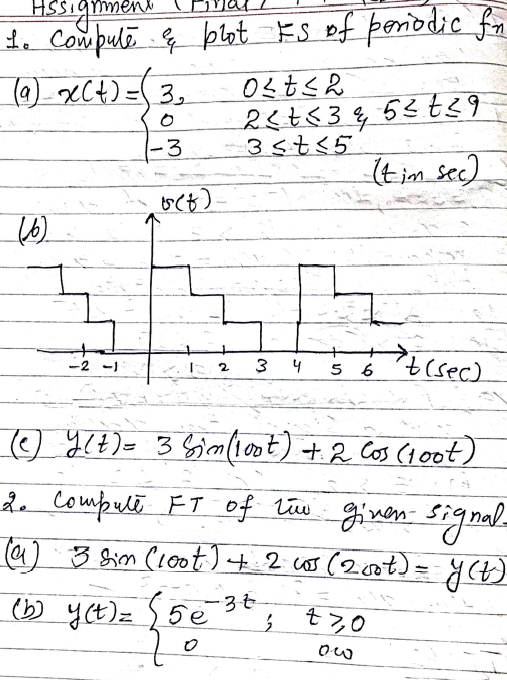 Assignment (Final)
1. Compute & plot FS of periodic fn
(a) x(t) = { 3, 0 ≤ t ≤ 2
0 2 ≤ t ≤ 3 & 5 ≤ t ≤ 9
-3 3 ≤ t ≤ 5
(t in sec)
v(t)
(b)
-2 -1 1 2 3 4 5 6 t (sec)
(c) y(t) = 3 Sin(100t) + 2 Cos (100t)
2. Compute FT of given signal
(a) 3 sin (100t) + 2 cos (200t) = y(t)
(b) y(t) = { 5e^-3t ; t ≥ 0
0 o.w